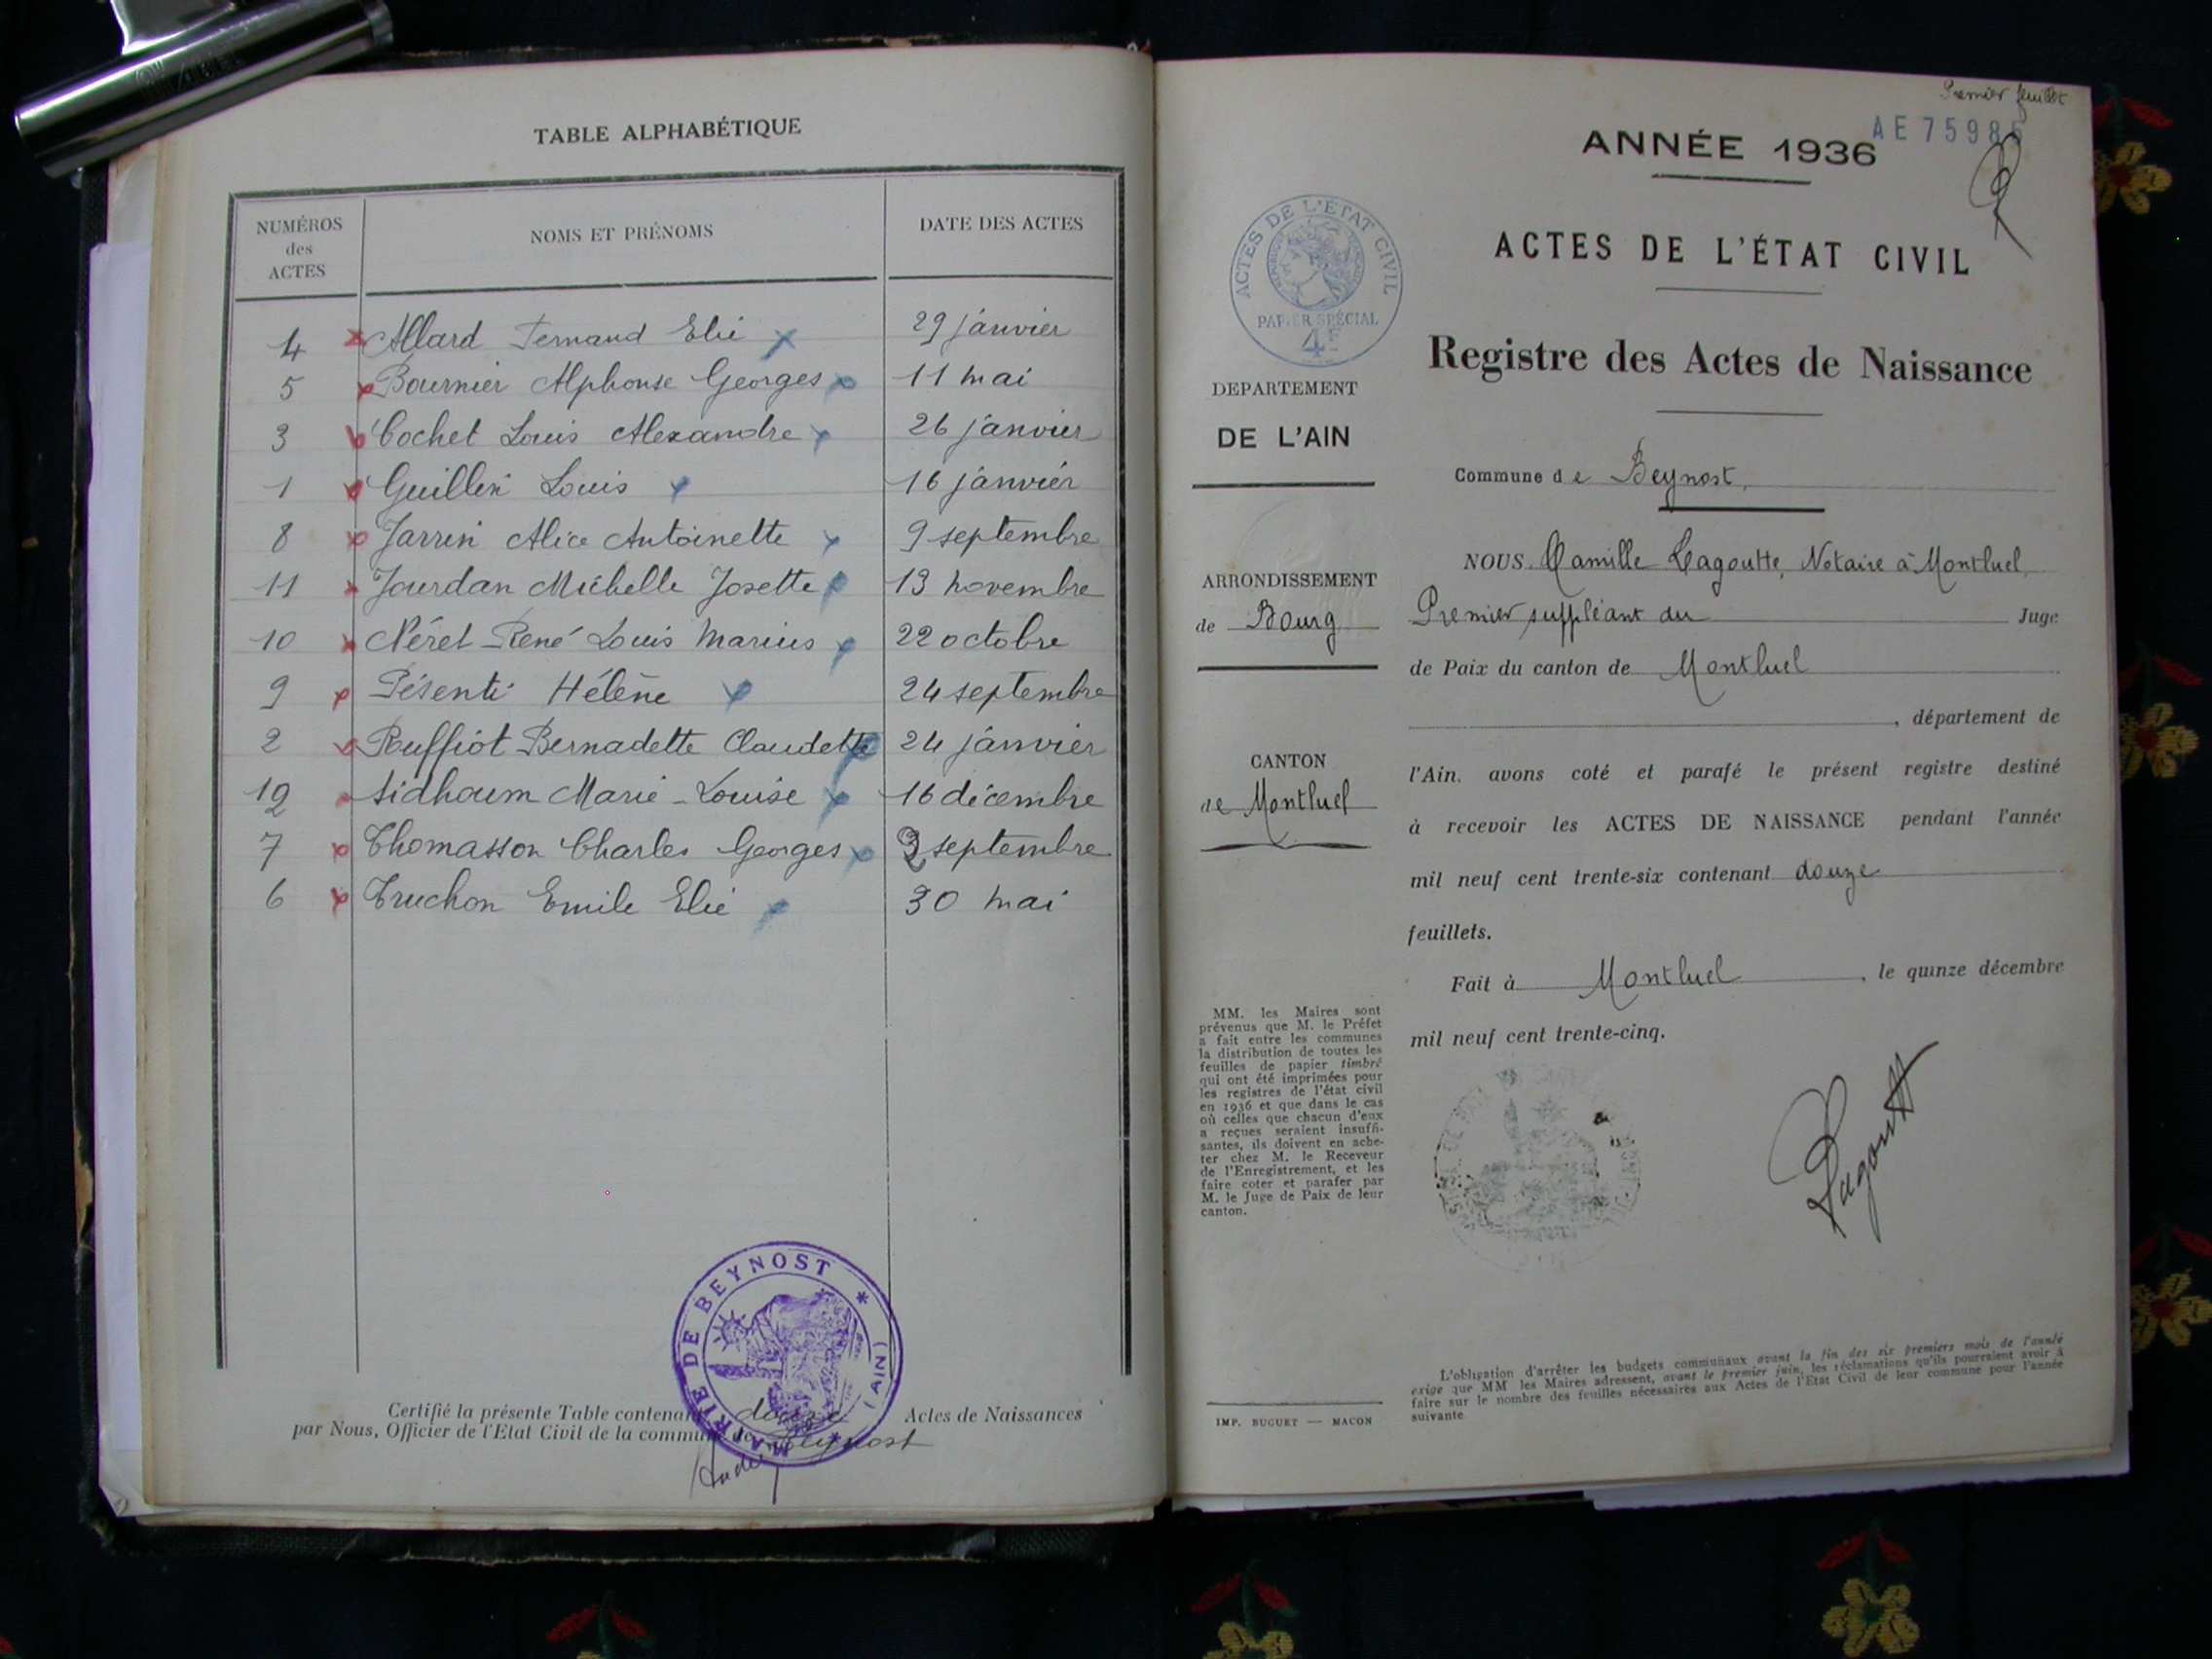 TABLE ALPHABÉTIQUE
NUMÉROS des ACTES NOMS ET PRÉNOMS DATE DES ACTES
4 Allard Fernand Elie 29 janvier
5 Bournier Alphonse Georges 11 mai
3 Cochet Louis Alexandre 26 janvier
1 Guillin Louis 16 janvier
8 Jarrin Alice Antoinette 9 septembre
11 Jourdan Michelle Josette 13 novembre
10 Néret René Louis Marius 22 octobre
9 Pésenti Hélène 24 septembre
2 Ruffiot Bernadette Claudette 24 janvier
12 Sidhoum Marie-Louise 16 décembre
7 Thomasson Charles Georges septembre
6 Truchon Emile Elie 30 mai
MAIRIE DE BEYNOST * (AIN) *
Certifié la présente Table contenant douze Actes de Naissances
par Nous, Officier de l'Etat Civil de la commune de Beynost
Premier feuillet
AE 75985
ANNÉE 1936
ACTES DE L'ÉTAT CIVIL
PAPIER SPÉCIAL
4F
ACTES DE L'ÉTAT CIVIL
Registre des Actes de Naissance
DEPARTEMENT
DE L'AIN
ARRONDISSEMENT
de Bourg
CANTON
de Montluel
MM. les Maires sont
prévenus que M. le Préfet
a fait entre les communes
la distribution de toutes les
feuilles de papier timbré
qui ont été imprimées pour
les registres de l'état civil
en 1936 et que dans le cas
où celles que chacun d'eux
a reçues seraient insuffi-
santes, ils doivent en ache-
ter chez M. le Receveur
de l'Enregistrement, et les
faire coter et parafer par
M. le Juge de Paix de leur
canton.
IMP. BUGUET — MACON
Commune de Beynost,
NOUS, Camille Lagoutte, Notaire à Montluel,
Premier suppléant du Juge
de Paix du canton de Montluel
, département de
l'Ain, avons coté et parafé le présent registre destiné
à recevoir les ACTES DE NAISSANCE pendant l'année
mil neuf cent trente-six contenant douze
feuillets.
Fait à Montluel, le quinze décembre
mil neuf cent trente-cinq.
Lagoutte
L'obligation d'arrêter les budgets communaux avant la fin des six premiers mois de l'année
exige que MM les Maires adressent, avant le premier juin, les réclamations qu'ils pourraient avoir à
faire sur le nombre des feuilles nécessaires aux Actes de l'Etat Civil de leur commune pour l'année
suivante